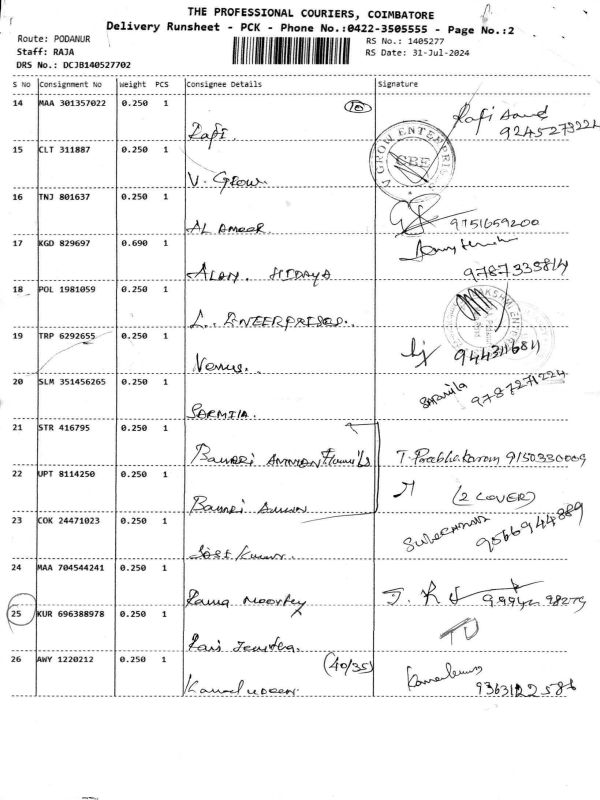 THE PROFESSIONAL COURIERS, COIMBATORE
Delivery Runsheet - PCK - Phone No.:0422-3505555 - Page No.:2
Route: PODANUR
RS No.: 1405277
Staff: RAJA
RS Date: 31-Jul-2024
DRS No.: DCJB140527702
S No Consignment No Weight PCS Consignee Details Signature
14 MAA 301357022 0.250 1
10
Rafi.
9245273221
15 CLT 311887 0.250 1
V GROW ENTERPRIS
CBE
V. Grow
16 TNJ 801637 0.250 1
AL Ameer. 9751659200
17 KGD 829697 0.690 1
ALAM HIDAYA 9787335814
18 POL 1981059 0.250 1
19 TRP 6292655 0.250 1
Venus.. 944311681
20 SLM 351456265 0.250 1
Sarmila 9787271224
SARMILA.
21 STR 416795 0.250 1
Bannari Amman T. Prabhakaran 9150330009
22 UPT 8114250 0.250 1
(2 COVER)
Bannari Amman
23 COK 24471023 0.250 1
9566944889
24 MAA 704544241 0.250 1
Rama Moorthy
25 KUR 696388978 0.250 1
26 AWY 1220212 0.250 1
(40/35)
9363122586